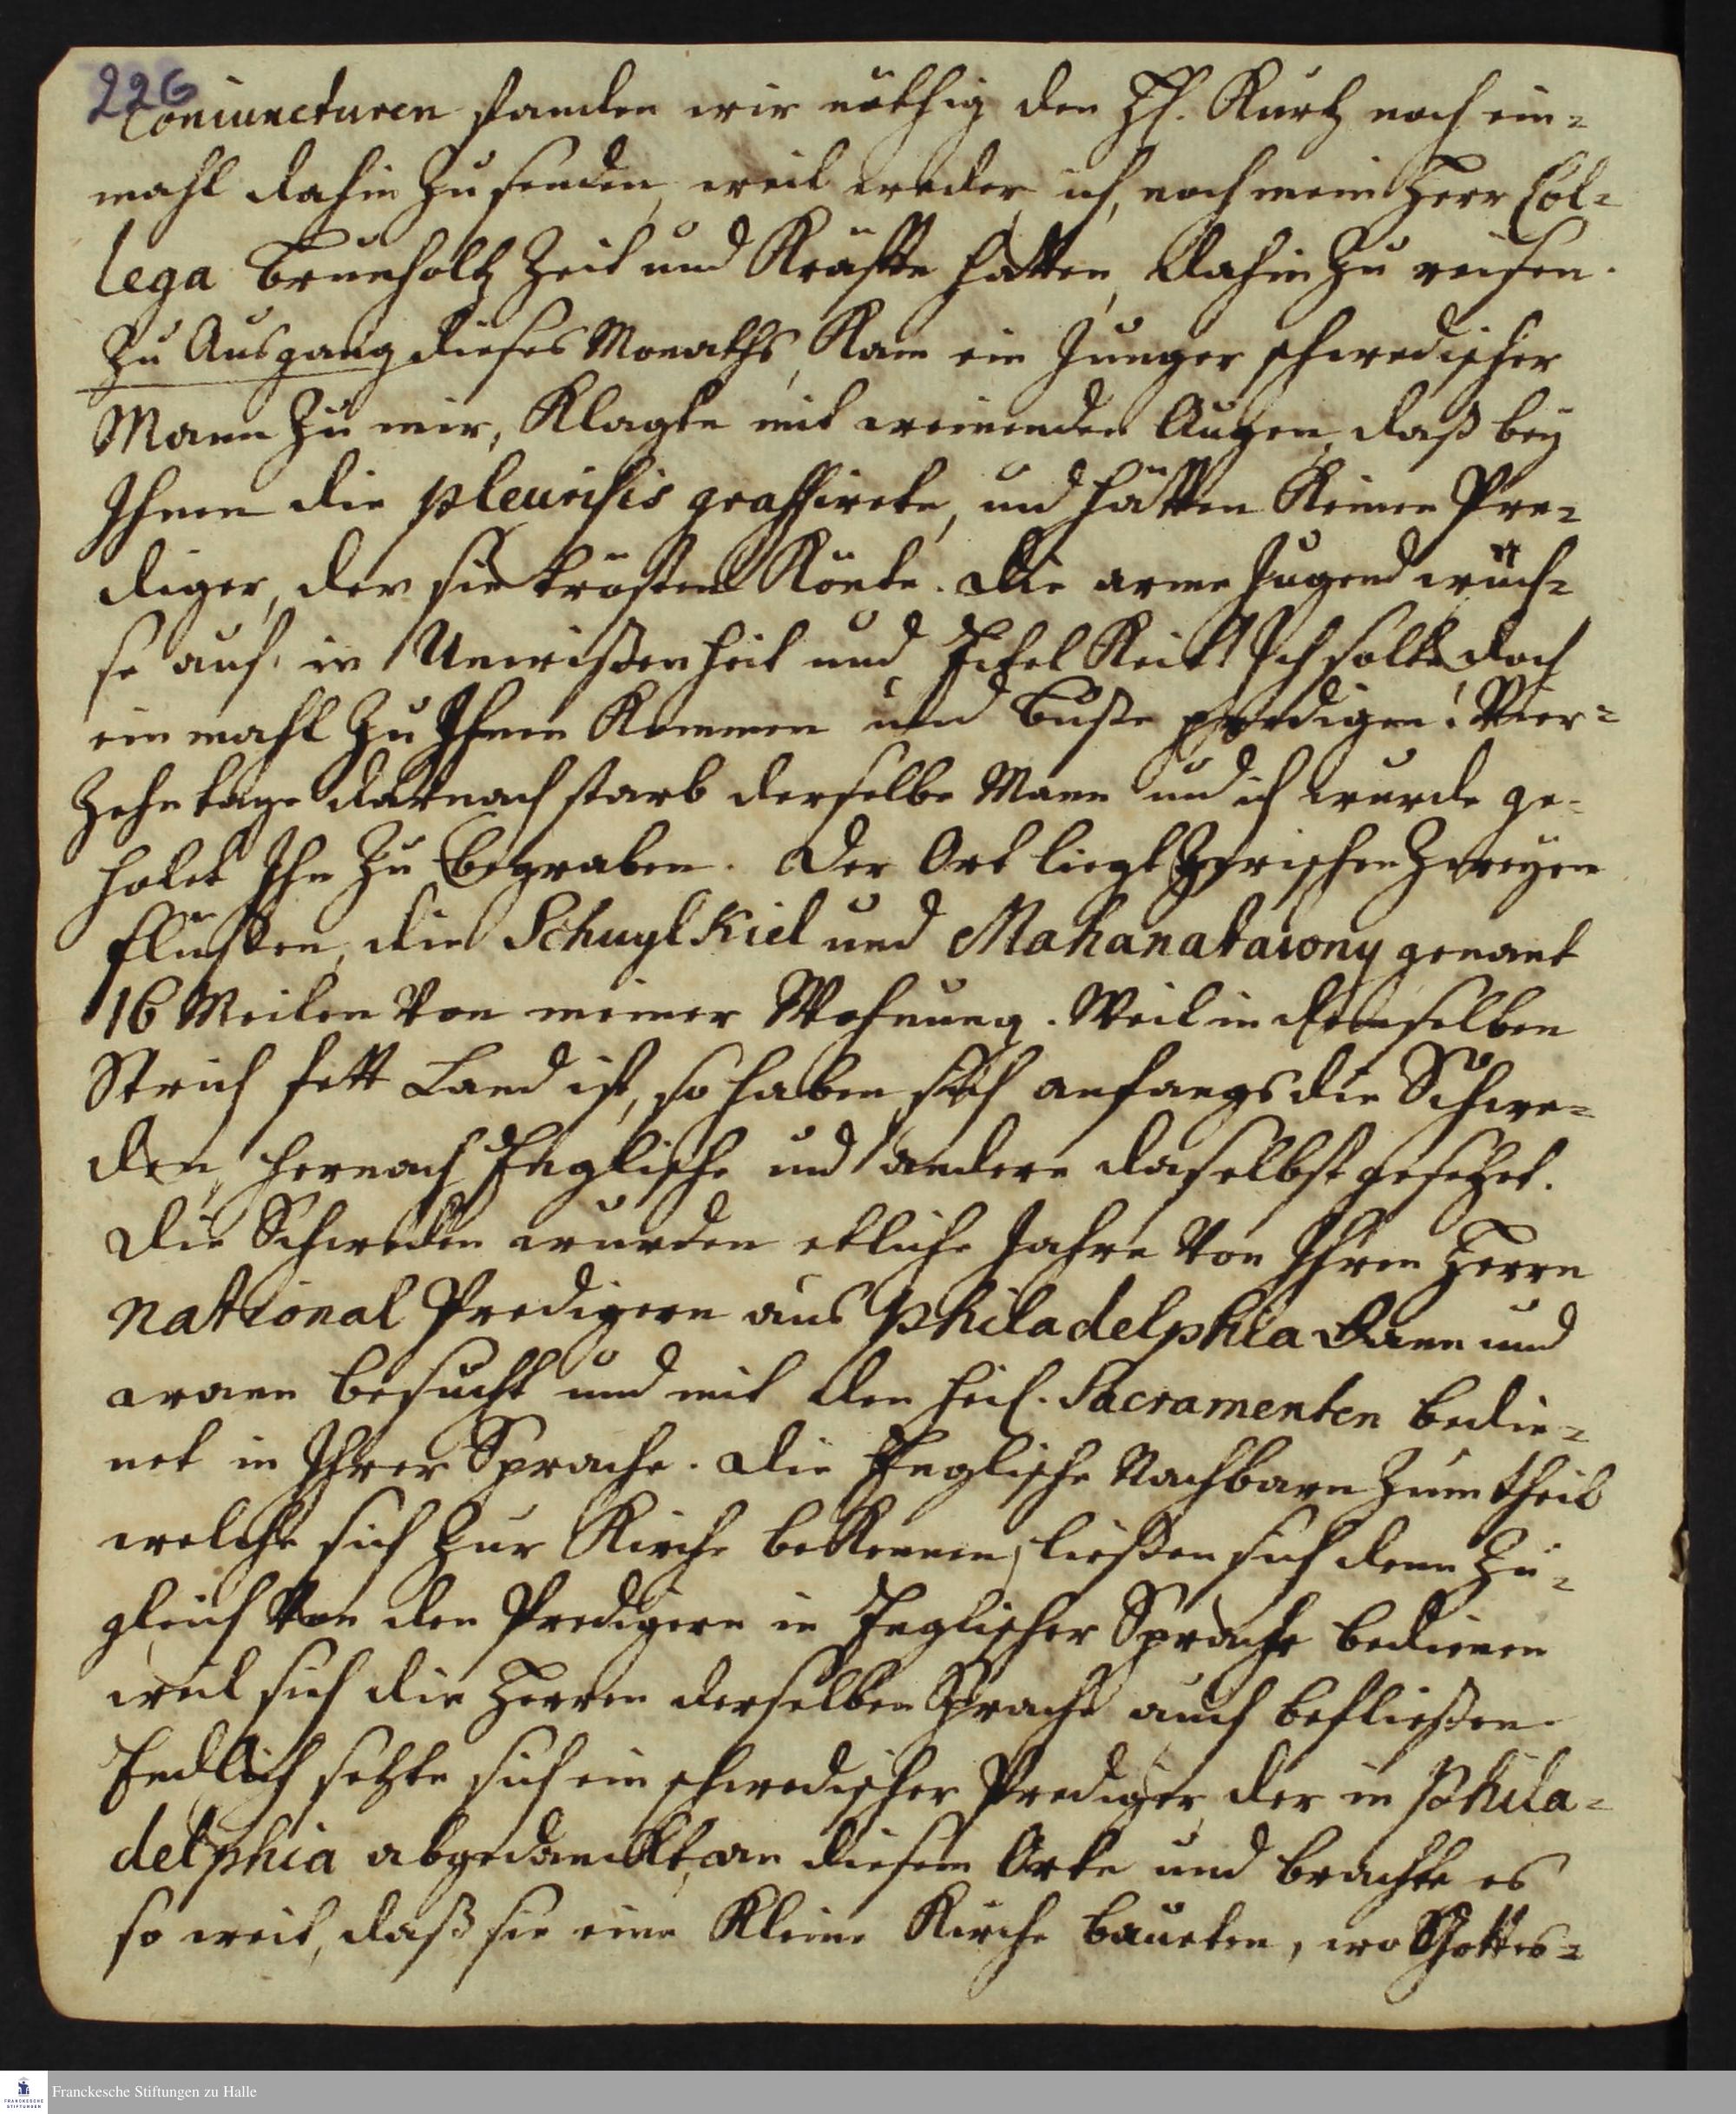 226
Coniuncturen fanden wir nöthig den H. Kurtz noch ein=
mahl dahin zu senden, weil weder ich, noch mein Herr Col=
lega Brunholtz Zeit und Kräffte hatten, dahin zu reisen.
Zu Ausgang dieses Monaths, Kam ein Junger schwedischer
Mann zu mir, Klagte mit weinenden Augen, daß bey
Ihnen die pleurisis grassirete, und hätten Keinen Pre=
diger, der sie trösten Könte. die arme Jugend wüch=
se auf in Unwißenheit und Eitel Keit! Ich solte doch
ein mahl zu Ihnen Kommen und Buße predigen! Vier=
zehn tage darnach starb derselbe Mann und ich wurde ge=
holet Ihn zu begraben. Der Ort liegt zwischen zweyen
flüssen, die Schuylkiel und Mahanatawny genant
16 Meilen von meiner Wohnung. Weil in demselben
Strich fett Land ist, so haben sich anfangs die Schwe=
den, hernach Englische und andere daselbst gesetzet.
Die Schweden wurden etliche Jahre von Ihren Herrn
National Predigern aus Philadelphia dann und
wann besucht und mit den heil. Sacramenten bedie=
net in Ihrer Sprache. die Englische Nachbarn zum theil
welche sich zur Kirche beKennen, ließen sich denn zu=
gleich von den Predigern in Englischer Sprache bedienen
weil sich die Herren derselben Sprache auch befließen.
Endlich setzte sich ein schwedischer Prediger, der in Phila=
delphia abgedanckt, an diesem Orte und brachte es
so weit, daß sie eine Kleine Kirche baueten, wo Gottes=
Franckesche Stiftungen zu Halle